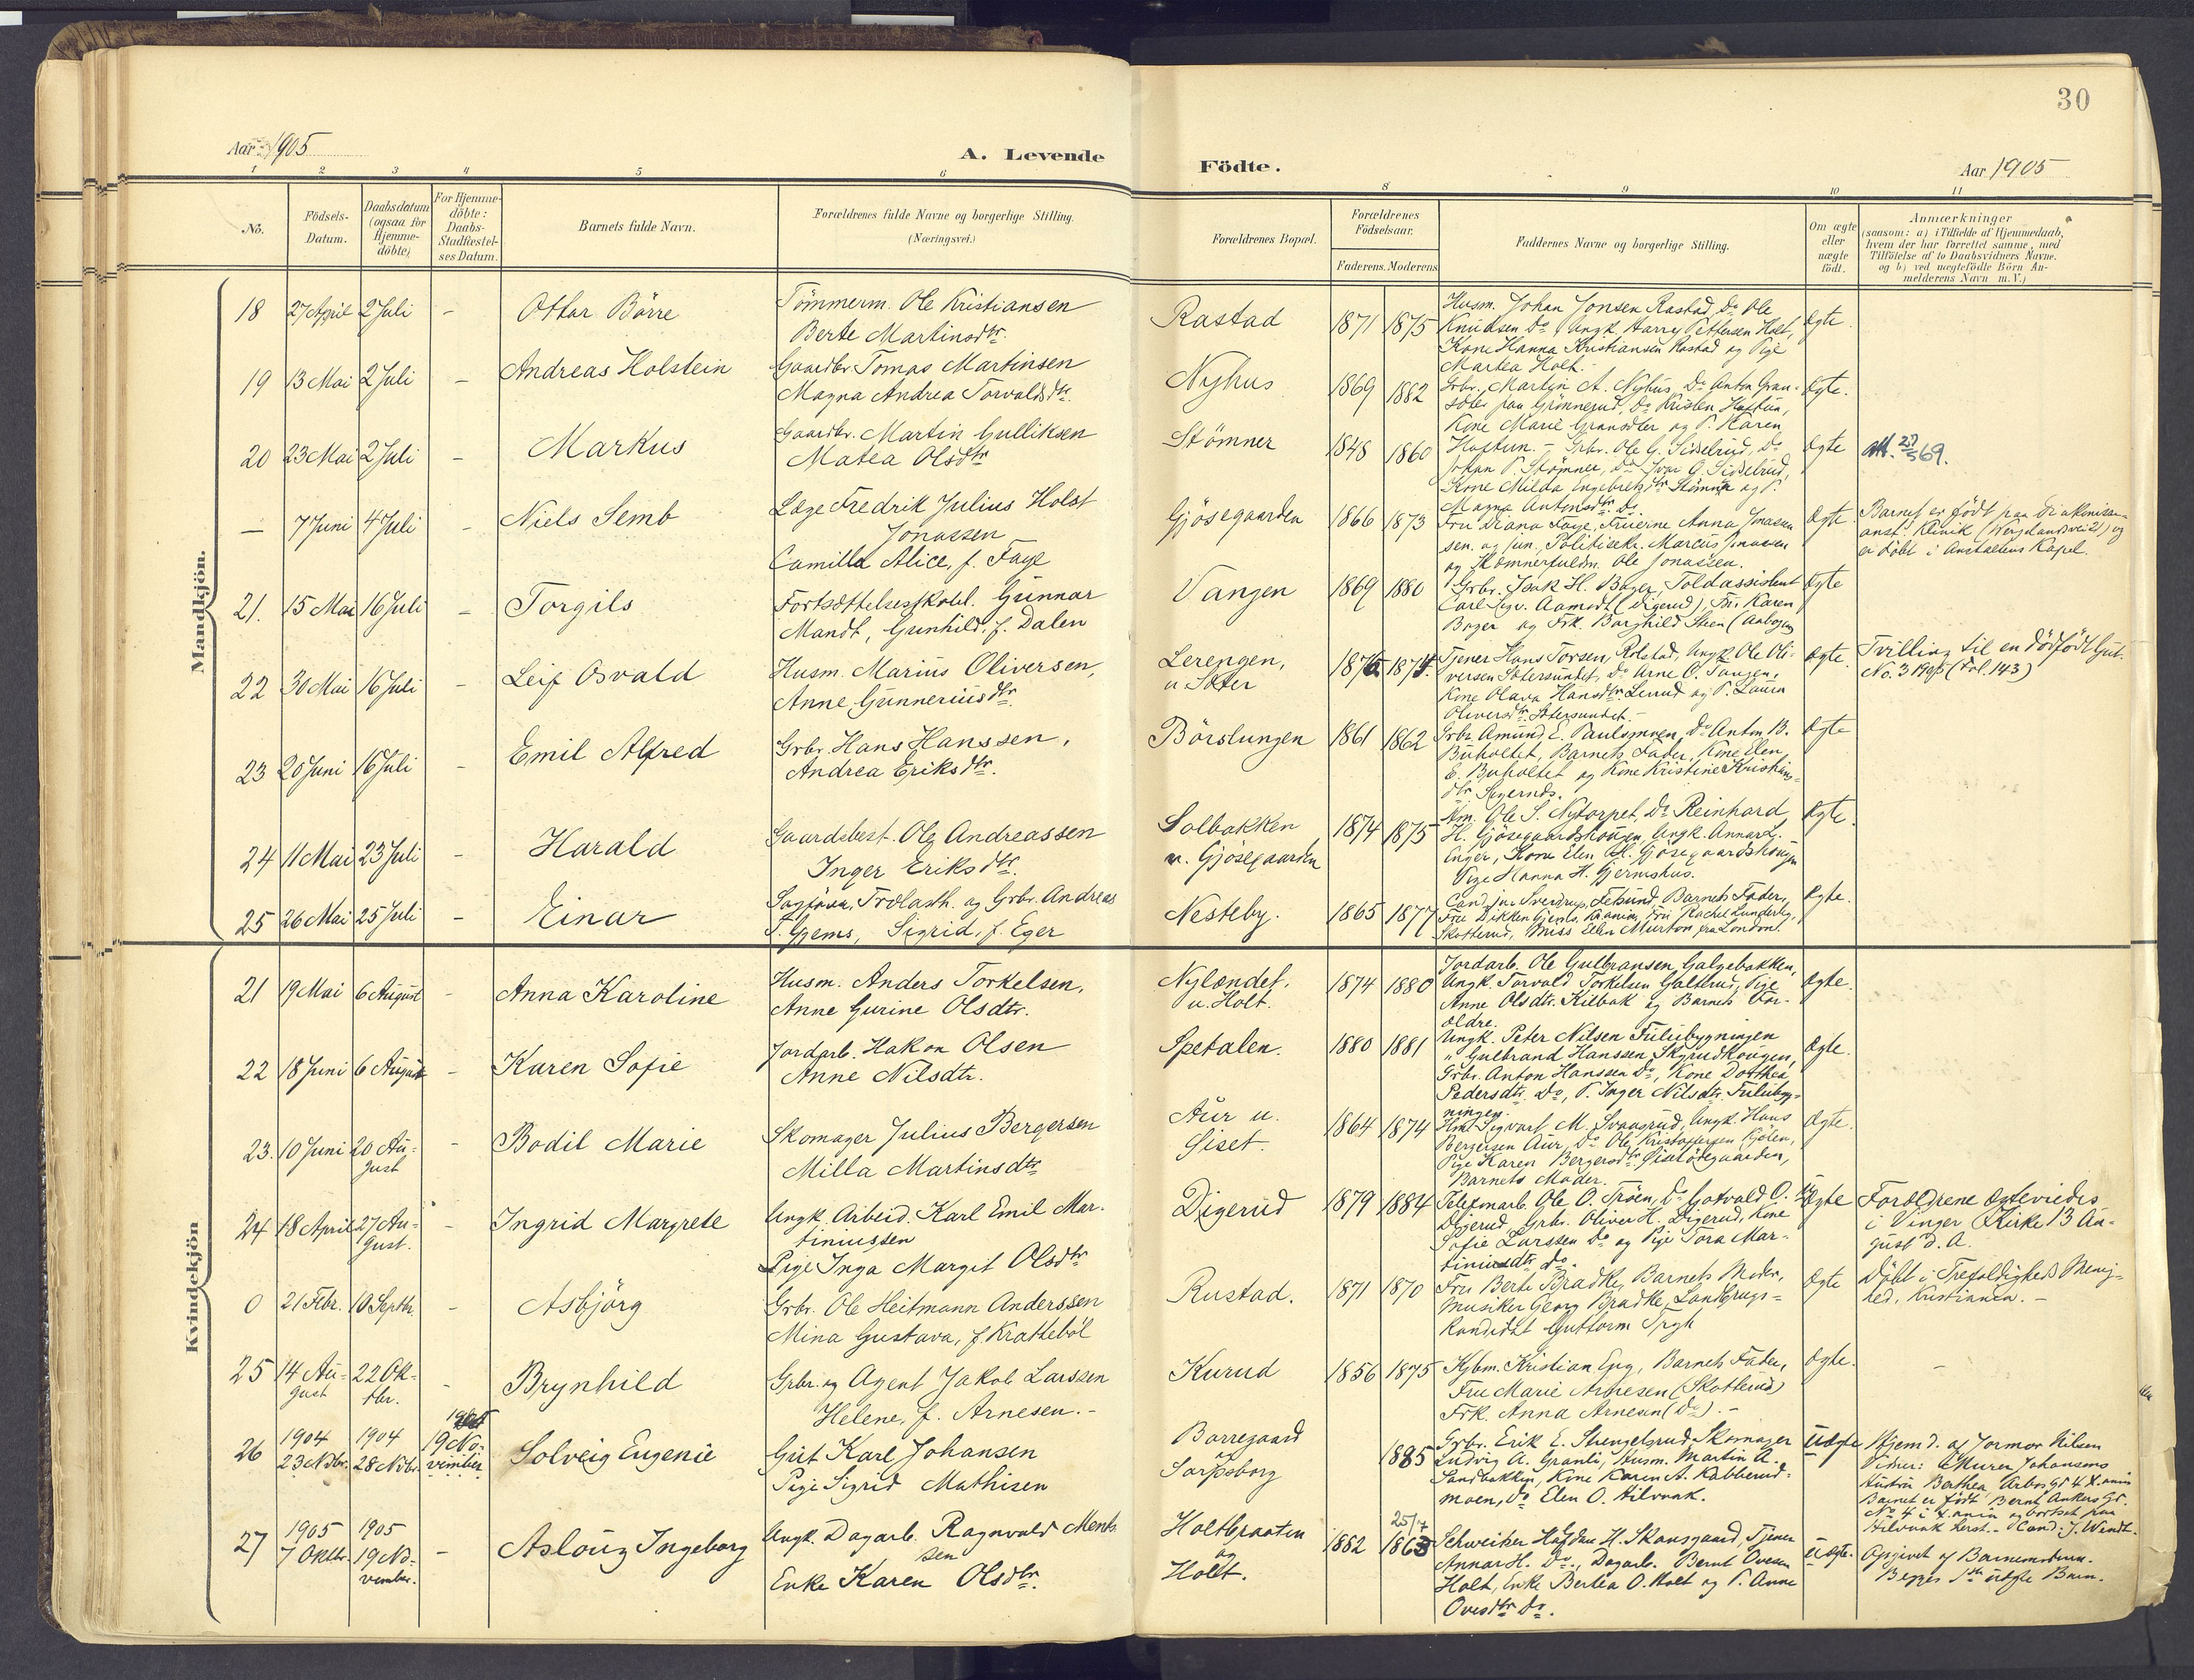 30
Aar 1905
A. Levende
Födte.
Aar 1905
1 2 3 4 5 6 8 9 10 11
No.
Födsels-
Datum.
Daabsdatum
(ogsaa for
Hjemme-
döbte)
For Hjemme-
döbte:
Daabs-
Stadfæstel-
ses Datum.
Barnets fulde Navn.
Forældrenes fulde Navne og borgerlige Stilling.
(Næringsvei.)
Forældrenes Bopæl.
Forældrenes
Födselsaar.
Faderens. Moderens
Faddernes Navne og borgerlige Stilling.
Om ægte
eller
uægte
födt.
Anmærkninger
(saasom: a) i Tilfælde af Hjemmedaab,
hvem der har forrettet samme, med
Tilföielse af to Daabsvidners Navne.
og b) ved uægtefödte Börn An-
melderens Navn m.V.)
Mandkjön.
18 27 April 2 Juli - Ottar Börre
Tömmerm. Ole Kristiansen
Berte Martinsdtr.
Rastad 1871 1875
Husm. Johan Jonsen Rastad, Do Ole
Knudsen Do, Ungk. Harry Pettersen Holt,
Kone Hanna Kristiansen Rastad og Pige
Martea Holt.
Ægte.
19 13 Mai 2 Juli - Andreas Holstein
Gaardbr. Tomas Martinsen
Magna Andrea Torvaldsdtr.
Nyhus 1869 1882
Grbr. Martin A. Nyhus, Do Anton Gran-
sæter paa Grönnerud, Do Kristen Haftun,
Kone Marie Gransæter og P. Karen
Haftun.
Ægte.
20 23 Mai 2 Juli - Markus
Gaardbr. Martin Gulliksen
Matea Olsdtr
Stömner 1848 1860
Grbr. Ole G. Sisselrud, Do
Johan P. Stömner, Do Ivar G. Sisselrud,
Kone Milda Engebretsdtr Stömner og P.
Magna Antonsdtr Do.
Ægte
Att. 27/3 69.
- 7 Juni 4 Juli - Niels Semb
Læge Fredrik Julius Holst
Jonassen
Camilla Alice, f. Faye
Gjösegaarden 1866 1873
Fru Diana Faye, Fruerne Anna Jonassen
sen. og jun., Politisekr. Marcus Jonassen
og Skomnerfuldm. Ole Jonassen.
Ægte.
Barnet er födt paa Diakonisse-
anst. Klinik (Wergelandsvei 21) og
er döbt i Anstaltens Kapel.
21. 15 Mai 16 Juli - Torgils
Fortsættelsesskolel. Gunnar
Mandt, Gunhild, f. Dalen
Vangen 1869 1880
Grbr. Isak H. Bager, Toldassistent
Carl Sigv. Aamodt (Digerud), Fru Karen
Bager og Frk. Borghild Steen (Aabogen
Ægte
22 30 Mai 16 Juli - Leif Osvald
Husm. Marius Oliversen,
Anne Gunneriusdtr.
Lerengen,
u Sæter 1876 1874.
Tjener Hans Torsen, Rolstad, Ungk. Ole Oli-
versen Sætersundet, Do Arne O. Tangen,
Kone Olava Hansdtr. Lerud og P. Laura
Oliversdtr. Sætersundet.-
Ægte.
Tvilling til en dödfödt Gut.
No. 3 1905 (Fol. 143)
23 20 Juni 16 Juli - Emil Alfred
Grbr. Hans Hanssen,
Andrea Eriksdtr.
Börslungen 1861 1862
Grbr. Amund E. Paulsmoen, Do Anton B.
Buholtet, Barnets Fader, Kone Elen
E. Buholtet og Kone Kristine Kristians-
dtr Sagernds.
Ægte
24 11 Mai 23 Juli - Harald
Gaardsbest. Ole Andreassen
Inger Eriksdtr.
Solbakken
u. Gjösegaarden 1874 1875
Hm. Ole S. Nytorpet, Do Reinhard
H. Gjösegaardskougen, Ungk. Annar L.
Enger, Kone Elen H. Gjösegaardskougen
Pige Hanna H. Gjermshus.
Ægte.
25 26 Mai 25 Juli - Einar
Sagförer, Trælasth. og Grbr. Andreas
T. Gjems, Sigrid, f. Eger
Nesteby. 1865 1877
Cand. jur. Sverdrup, Fetsund, Barnets Fader,
Fru Dikken Gjems, Kr.ania, Fru Rachel Lunderby,
Skotterud, Miss Ellen Murton fra London.
Ægte.
Kvindekjön
21 19 Mai 6 August - Anna Karoline
Husm. Anders Torkelsen,
Anne Gurine Olsdtr.
Nylændet,
u. Holt. 1874 1880
Jordarb. Ole Gulbransen, Galgebakken,
Ungk. Torvald Torkelsen Galterud, Pige
Anne Olsdtr. Kilbak og Barnets For-
ældre.
Ægte.
22 18 Juni 6 August - Karen Sofie
Jordarb. Hakon Olsen
Anne Nilsdtr.
Spetalen. 1880 1881
Ungk. Peter Nilsen Fulubygningen
" Gulbrand Hanssen Skyrudkougen,
Grbr. Anton Hanssen Do, Kone Dorthea
Pedersdtr. Do, P. Inger Nilsdtr. Fuluby-
ningen.
Ægte.
23. 10 Juni 20 Au-
gust - Bodil Marie
Skomager Julius Bergersen
Milla Martinsdtr
Aur u.
Siset. 1864 1874
Hm. Sigvart M. Svansrud, Ungk. Hans
Bergersen Aur, Do Ole Kristoffersen Kjölen,
Pige Karen Bergersdtr. Sisetödegaarden,
Barnets Moder.
Ægte.
24 18 April 27 Au-
gust. - Ingrid Margrete
Ungk. Arbeid. Karl Emil Mar-
tiniussen
Pige Inga Margit Olsdtr
Digerud 1879 1884
Telefonarb. Ole O. Tröen, Do Gotvald O.
Digerud, Grbr. Oliver H. Digerud, Kone
Sofie Larssen Do og Pige Tora Mar-
tiniusdtr Do.
Ægte
Forældrene ægteviedes
i Vinger Kirke 13 Au-
gust d. A.
0 21 Febr. 10 Septbr. - Asbjörg
Grbr. Ole Heitmann Anderssen
Mina Gustava, f. Kratteböl
Rustad. 1871 1870
Fru Berte Bradke, Barnets Moder,
Musiker Georg Bradke, Landbrugs-
kandidat Guttorm
Ægte
Döbt i Trefoldigheds Menig-
hed, Kristiania. -
25 14 Au-
gust 22 Ok-
tbr. - Brynhild
Grbr. og Agent Jakob Larssen
Helene, f. Arnesen.-
Kurud 1856 1875
Kjbm. Kristian Eng, Barnets Fader,
Fru Marie Arnesen (Skotterud)
Frk. Anna Arnesen (Do).-
Ægte.
-
26 1904
23 Novbr. 1904
28 Novbr. 19 No-
vember Solveig Eugenie
Gut Karl Johansen
Pige Sigrid Mathisen
Borregaard
Sarpsborg 1885
Grbr. Erik E. Strengelsrud, Skomager
Ludvig A. Granli, Husm. Martin A.
Sandbakken, Kone Karen A. Kabberud-
moen, Do Elen O. Hilvaak.
Uægte
Hjemd. af Jormor Nilsen
Vidner: Murer Johansens
Hustru Berthea, Arbos Gt 4 X.ania
Barnet er födt Bernt Ankers Gt.
No 4 i X.ania og bortsat paa
Cand. J. Wendt.
27 1905
7 Oktbr. 1905
19 No-
vember. - Aslaug Ingeborg
Ungk. Dagarb. Ragnvald Ments-
sen
Enke Karen Olsdtr.
Holtbraaten
og
Holt. 1882 25/7 1863
Schweiser Halfdan H. Skansgaard, Tjener
Annar H. Do, Dagarb. Bernt Ovesen
Holt, Enke Bertea O. Holt og P. Anne
Ovesdtr Do.
Uægte.
Opgivet af Barnemoderen.
Begges 1ste uægte Barn.